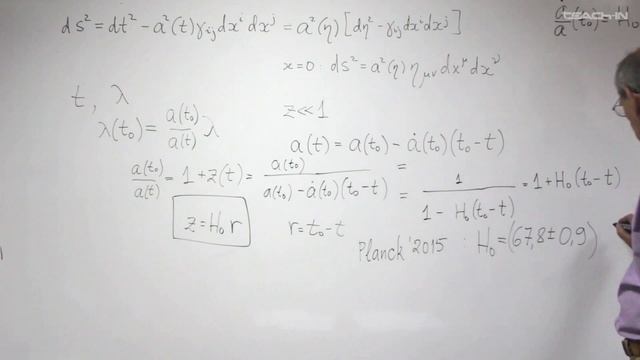 ds² = dt² − a²(t)γᵢⱼdxⁱdxʲ = a²(η)[dη² − γᵢⱼdxⁱdxʲ]
ȧ/a(t₀) = H₀
ϰ=0 : ds² = a²(η) η_μν dx^μ dx^ν
t, λ
z ≪ 1
λ(t₀) = a(t₀)/a(t) λ
a(t) = a(t₀) − ȧ(t₀)(t₀ − t)
a(t₀)/a(t) = 1 + z(t) = a(t₀)/(a(t₀) − ȧ(t₀)(t₀ − t)) = = 1/(1 − H₀(t₀−t)) = 1 + H₀(t₀−t)
z = H₀ r
r = t₀ − t
Planck '2015 : H₀ = (67,8 ± 0,9)
TEACH-IN